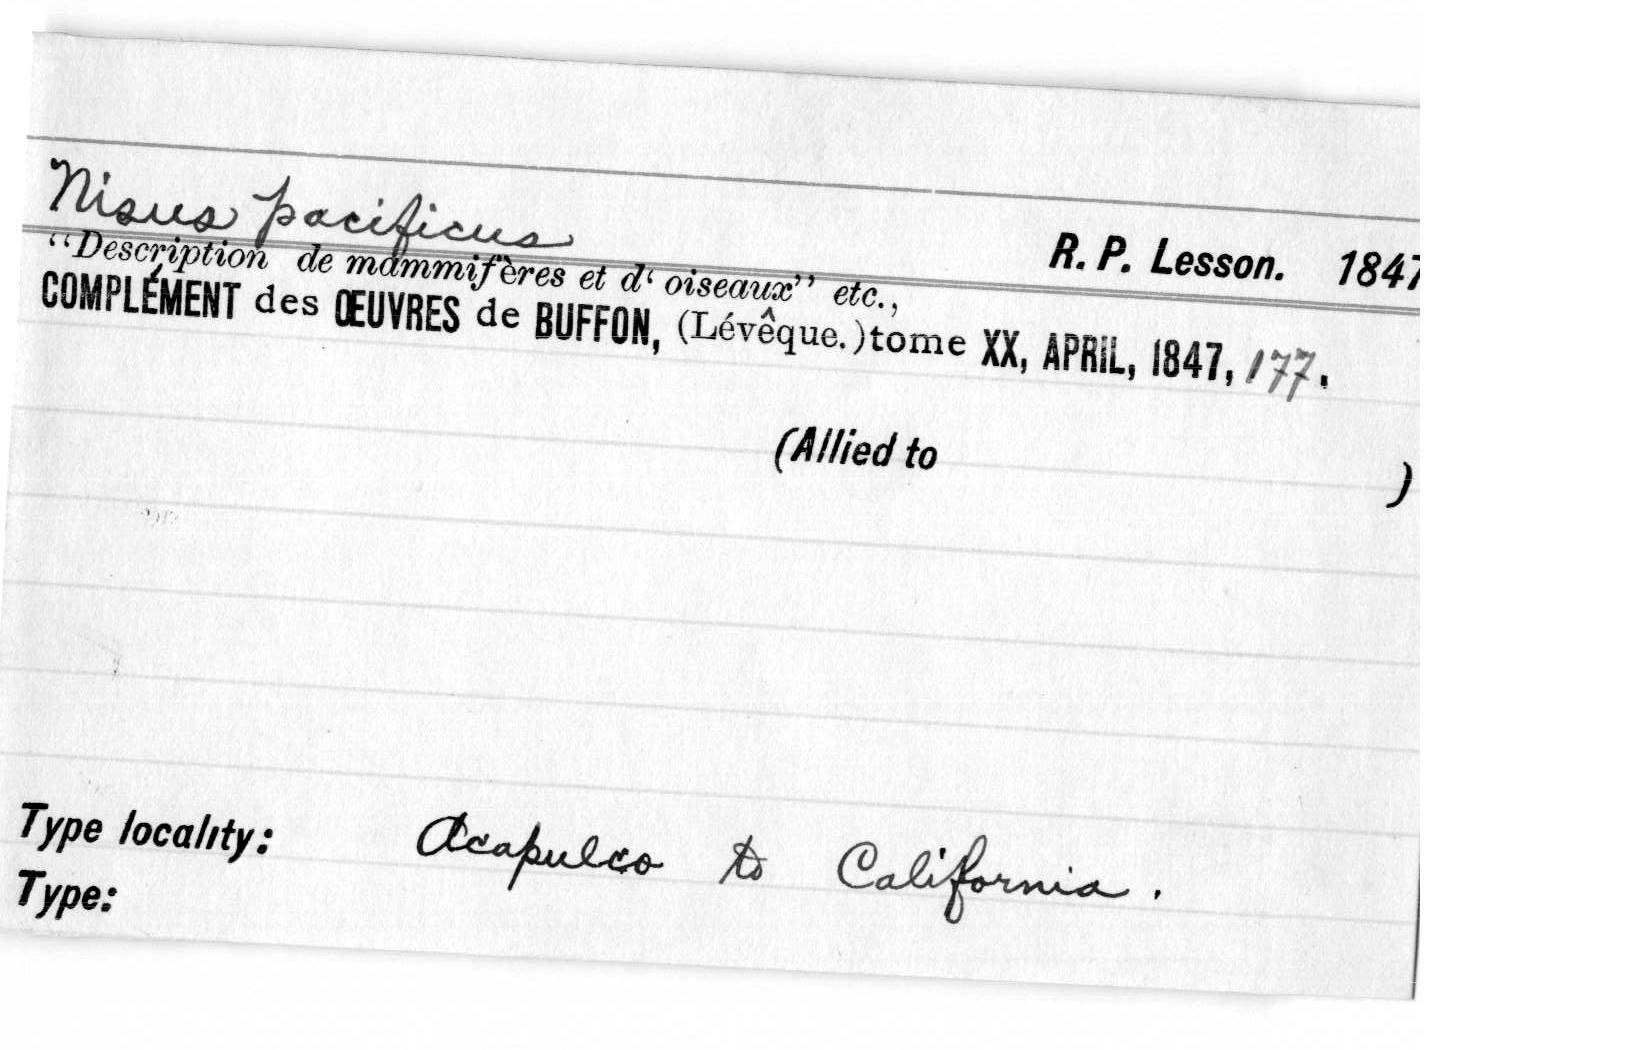 Nisus pacificus R. P. Lesson. 1847
“Description de mammifères et d‘ oiseaux” etc.,
COMPLÉMENT des ŒUVRES de BUFFON, (Lévêque.) tome XX, APRIL, 1847, 177.
(Allied to )
Type locality: Acapulco to California.
Type: